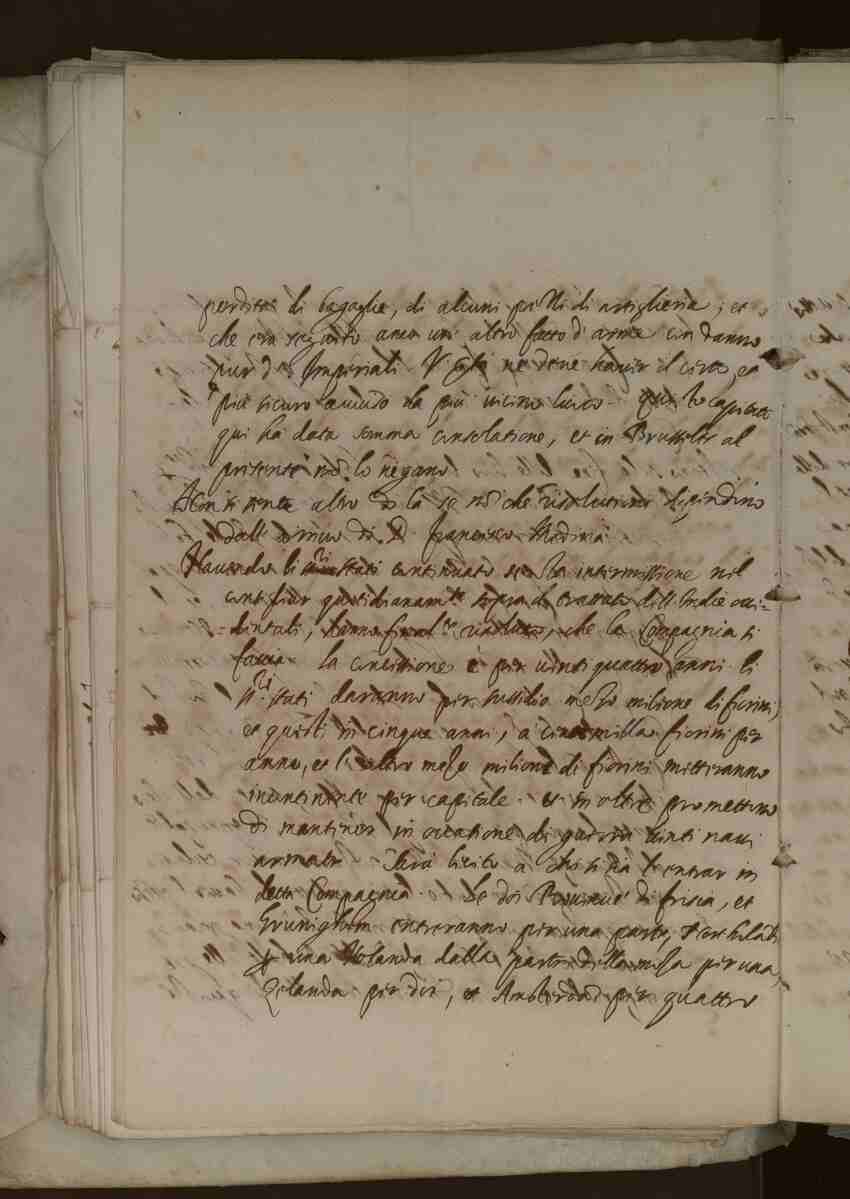 perdita di bagaglie, di alcuni pezzi di artiglieria; et
che era seguito anco un' altro fatto d'arme con danno
pur d' Imperiali V. Sertà ne deve haver il certo, et
più sicuro aviso da più vicino luoco. Questo capitato
qui ha data somma consolatione, et in Brusseles al
presente non lo negano
Non si sente altro di là se non che risolutioni dipendino
dall' arrivo di D. Francesco Medina
Havendo li Sri Stati continuato senza intermissione nel
conferir quotidianamte sopra il trattato dell'Indie occi-
dentali, hanno finalte risoluto, che la Compagnia si
faccia la concessione è per vinti quattro anni li
Sri stati daranno per sussidio mezo milione di fiorini,
et questi in cinque anni, a cento milla fiorini per
anno, et l' altro mezo milione di fiorini metteranno
incontinente per capitale. et in oltre promettono
di mantener in occasione di guerra vinti navi
armate Sarà licito a chi si sia l' entrar in
detta Compagnia. Le doi Provincie di Frisia, et
Gruninghen entreranno per una parte,
una Holanda dalla parte della Mosa per una,
Zelanda per doi, et Ansterdam per quattro